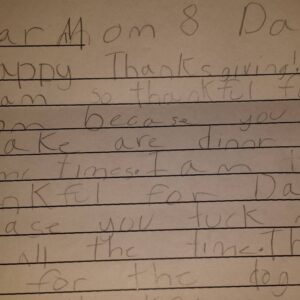 ar Mom & Da
appy Thanksgiving!
am so thankful f
om becase you
ake are dinr
me times. I am
nkful for Da
ase you tuck
all the time. Th
for the dog